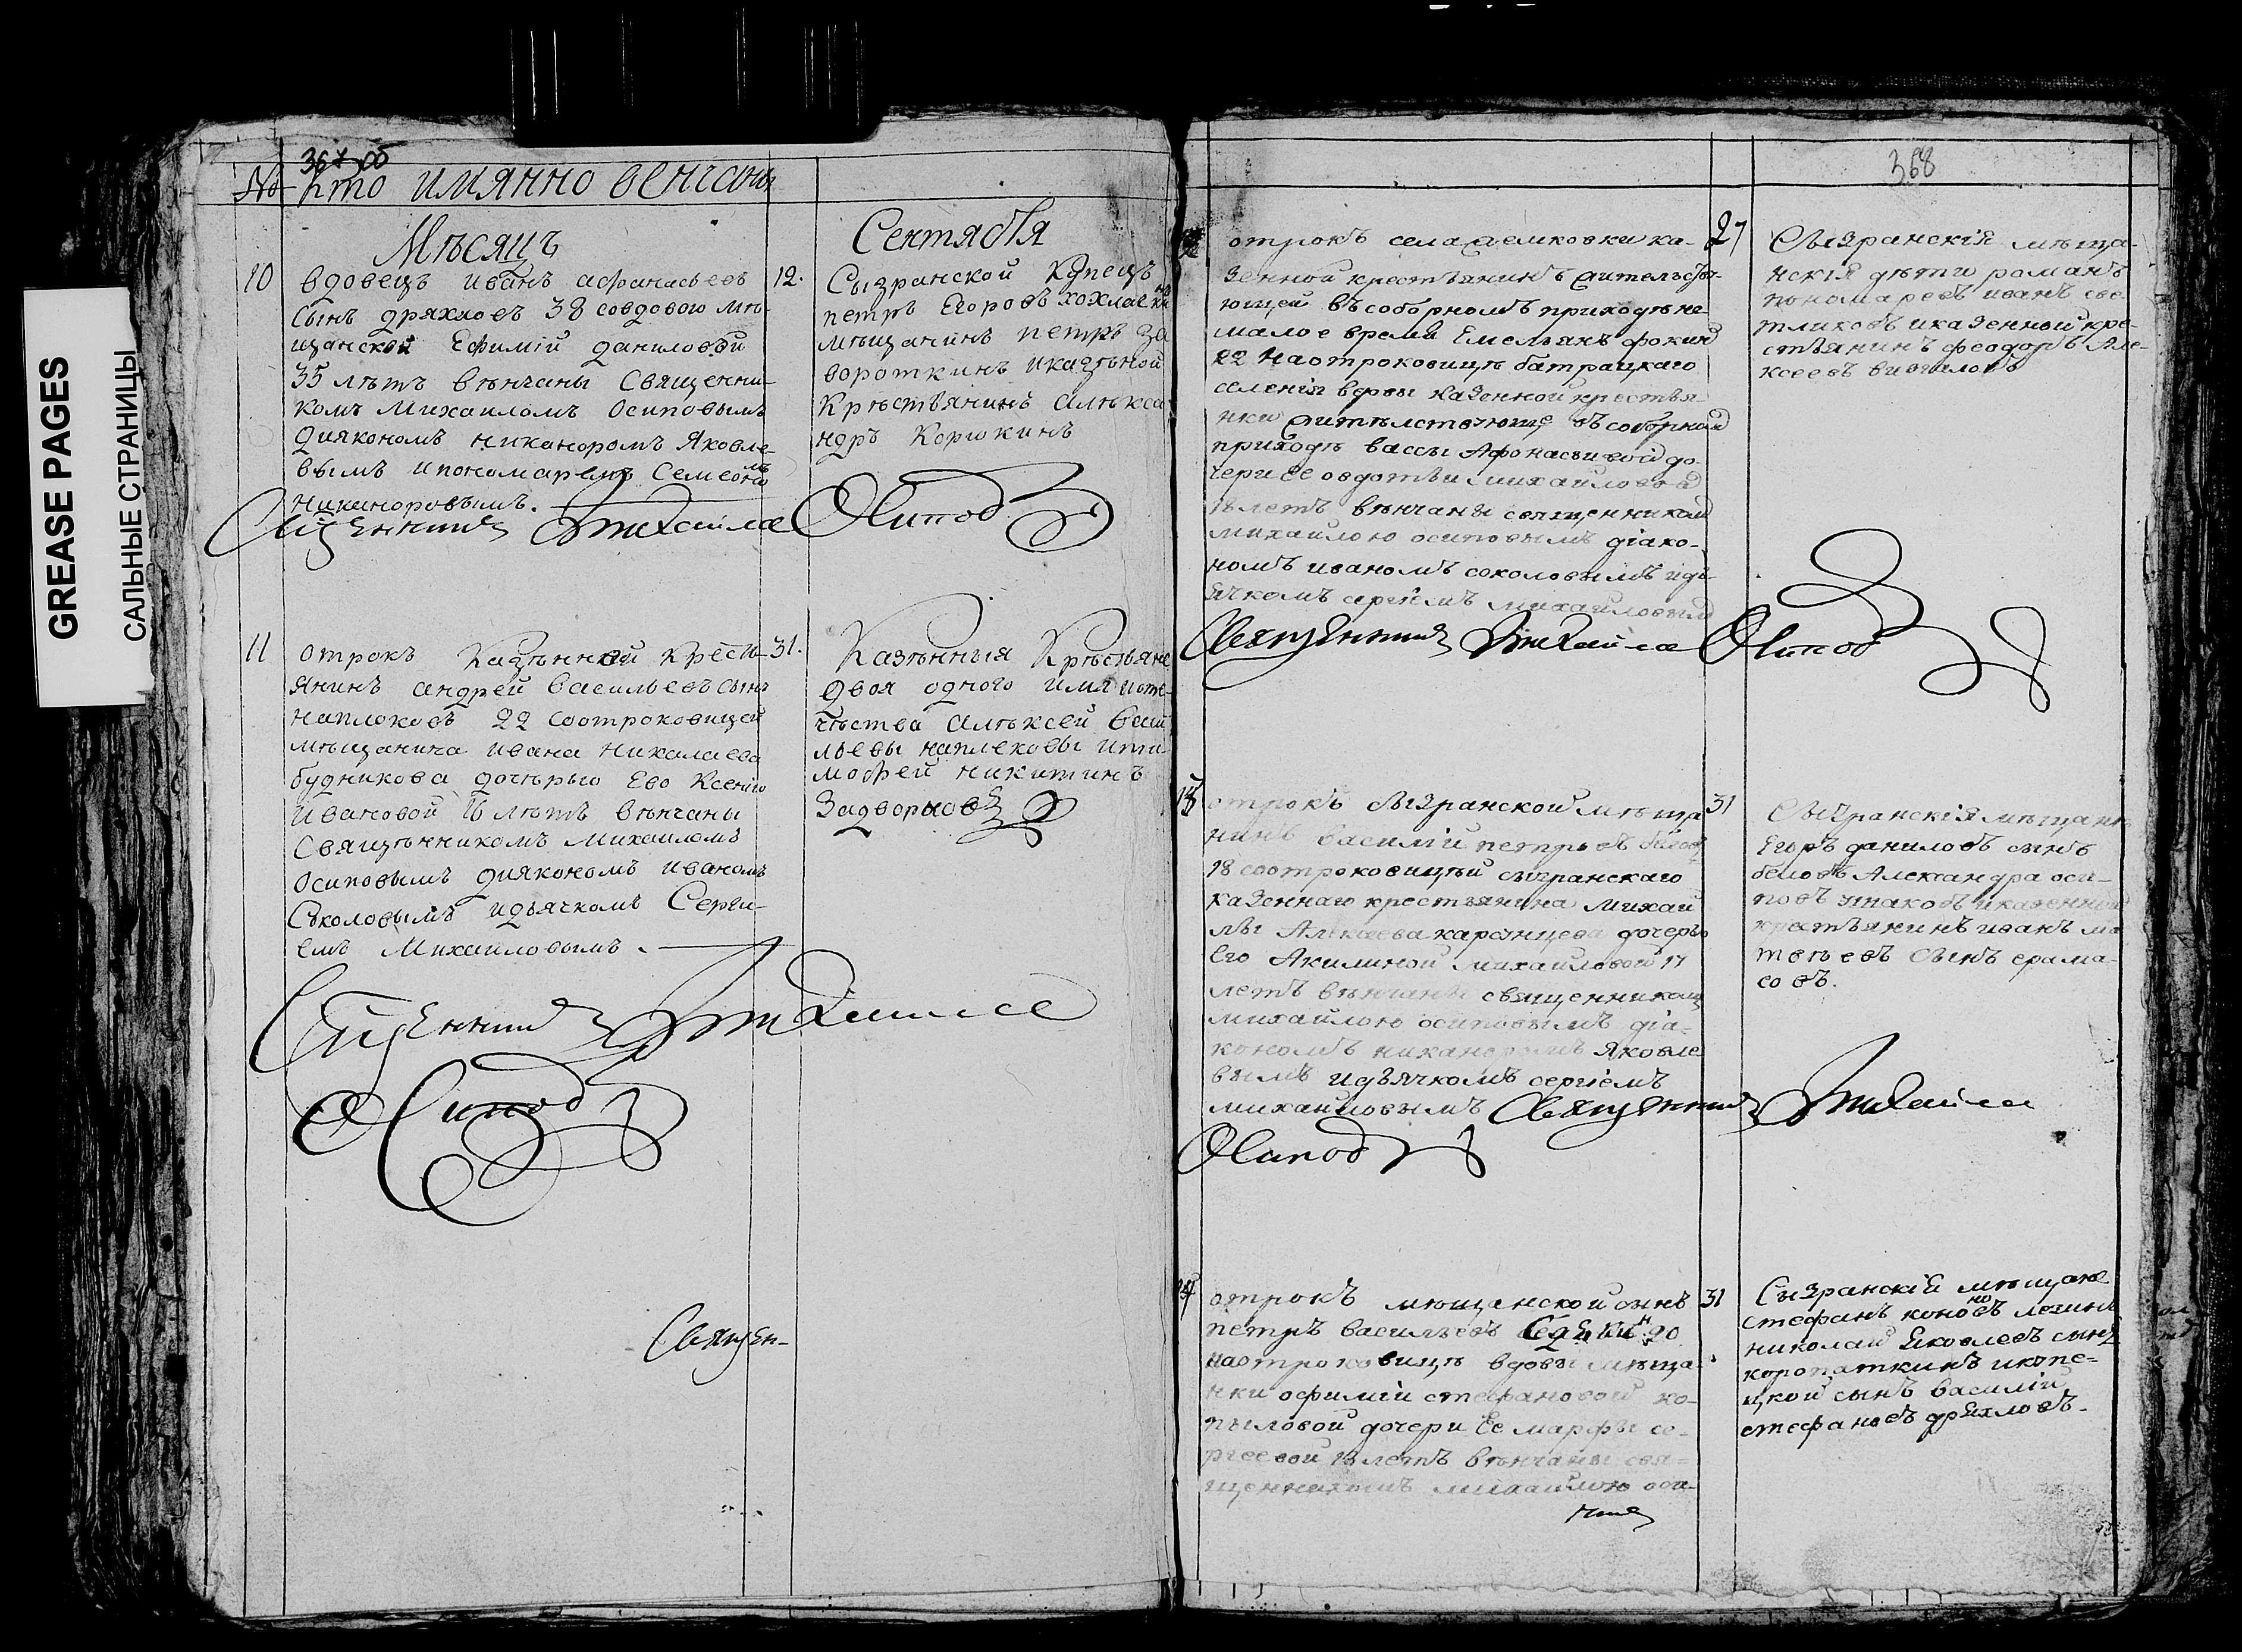 GREASE PAGES
САЛЬНЫЕ СТРАНИЦЫ
367 об
№ Кто имянно венчаны
Мѣсяцъ
10 вдовецъ иванъ афанасьевъ
сынъ дряхловъ 38 совдовою мѣ-
щанской Ефимій даниловой
35 лѣтъ вѣнчаны Священни-
комъ Михаиломъ Осиповымъ
диякономъ никаноромъ Яковле-
вымъ ипономаремъ Семеономъ
никаноровымъ.
Священникъ Михаила Осиповъ
Сентября
12. Сызранской Купецъ
петръ Егоровъ хохлов
мѣщанинъ петръ За
вороткинъ иказѣной
Крѣстьянинъ алѣкса
ндръ Корюкинъ
11 отрокъ Казѣнной крѣсть-
янинъ андрей васильевъ сынъ
наплоковъ 22 соотроковицей
мѣщанина ивана николаева
будникова дочѣрью Ево Ксенію
ивановой 16 лѣтъ вѣнчаны
Свящѣнникомъ михаиломъ
осиповымъ дияконом иваномъ
Соколовымъ идьячкомъ Серги-
емъ Михаиловымъ.
Священникъ Михаила
Осиповъ
31. Казѣнныя Крѣстьяне
двоя одного имя иоте-
чѣства алѣксей васи
льевы наплековы ити
мофей никитинъ
Задворновъ
Священ-
368
отрокъ села ка-
зенной крестьянинъ жительств-
ующей въ соборномъ приходѣ не
малое время Емельянъ фокинъ
22 наотроковицѣ батрацкаго
селенія вдовы казенной крестья-
нки жительствующе въ соборном
приходѣ вассы Афонасьивой до-
чери ее овдотьи михайловой
18 летъ вѣнчаны священникомъ
михаилою осиповымъ діако-
номъ иваномъ соколовымъ идь-
ячкомъ сергіемъ михаиловым
Священникъ Михаила Осиповъ
27 Сызранскія мѣща-
нскія дѣти романъ
пономаревъ иванъ све
тликовъ иказенной кре-
стьянинъ феодоръ Але-
ксеевъ
13 отрокъ сызранской мѣща
нинъ василій петровъ
18 соотроковицѣй сызранскаго
казеннаго крестьянина михаи
лы Алексеева карянцева дочерью
Его Акилиной михаиловой 17
летъ вѣнчаны священником
михаилою осиповымъ діа-
кономъ никаноромъ яковле
вымъ идьячкомъ сергіемъ
михаиловымъ Священникъ Михаила
Осиповъ
31 Сызранскія мѣщане
Егоръ даниловъ сынъ
беловъ Александра оси-
повъ иказенной
крестьянинъ иванъ ма
твѣевъ сынъ ерама-
совъ.
14 отрокъ мещанской сынъ
петръ васильевъ 20
наотроковицѣ вдовы мѣща-
нки офиміи стефановой ко-
пыловой дочери Ее марфы се-
ргеевой 18 летъ вѣнчаны свя-
щенникомъ михаилою оси-
31 Сызранскій мѣщане
стефанъ
николаи Яковлевъ сынъ
коропаткинъ икупе-
цкой сынъ василій
стефановъ дрЯхловъ.